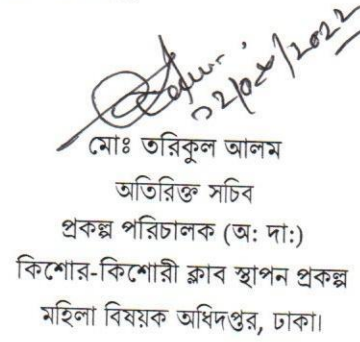 মোঃ তরিকুল আলম
অতিরিক্ত সচিব
প্রকল্প পরিচালক (অ: দা:)
কিশোর-কিশোরী ক্লাব স্থাপন প্রকল্প
মহিলা বিষয়ক অধিদপ্তর, ঢাকা।